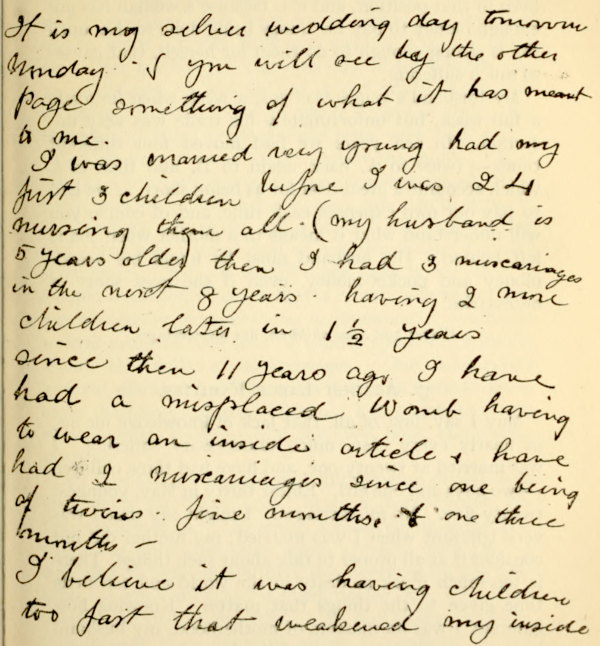 It is my silver wedding day tomorrow
Monday & you will see by the other
page something of what it has meant
to me.
I was married very young had my
first 3 children before I was 24
nursing them all. (my husband is
5 years older) then I had 3 miscariages
in the next 8 years. having 2 more
children later in 1 ½ years
since then 11 years ago I have
had a misplaced Womb having
to wear an inside article & have
had 2 miscariages since one being
of twins. five months, & one three
months –
I believe it was having children
too fast that weakened my inside